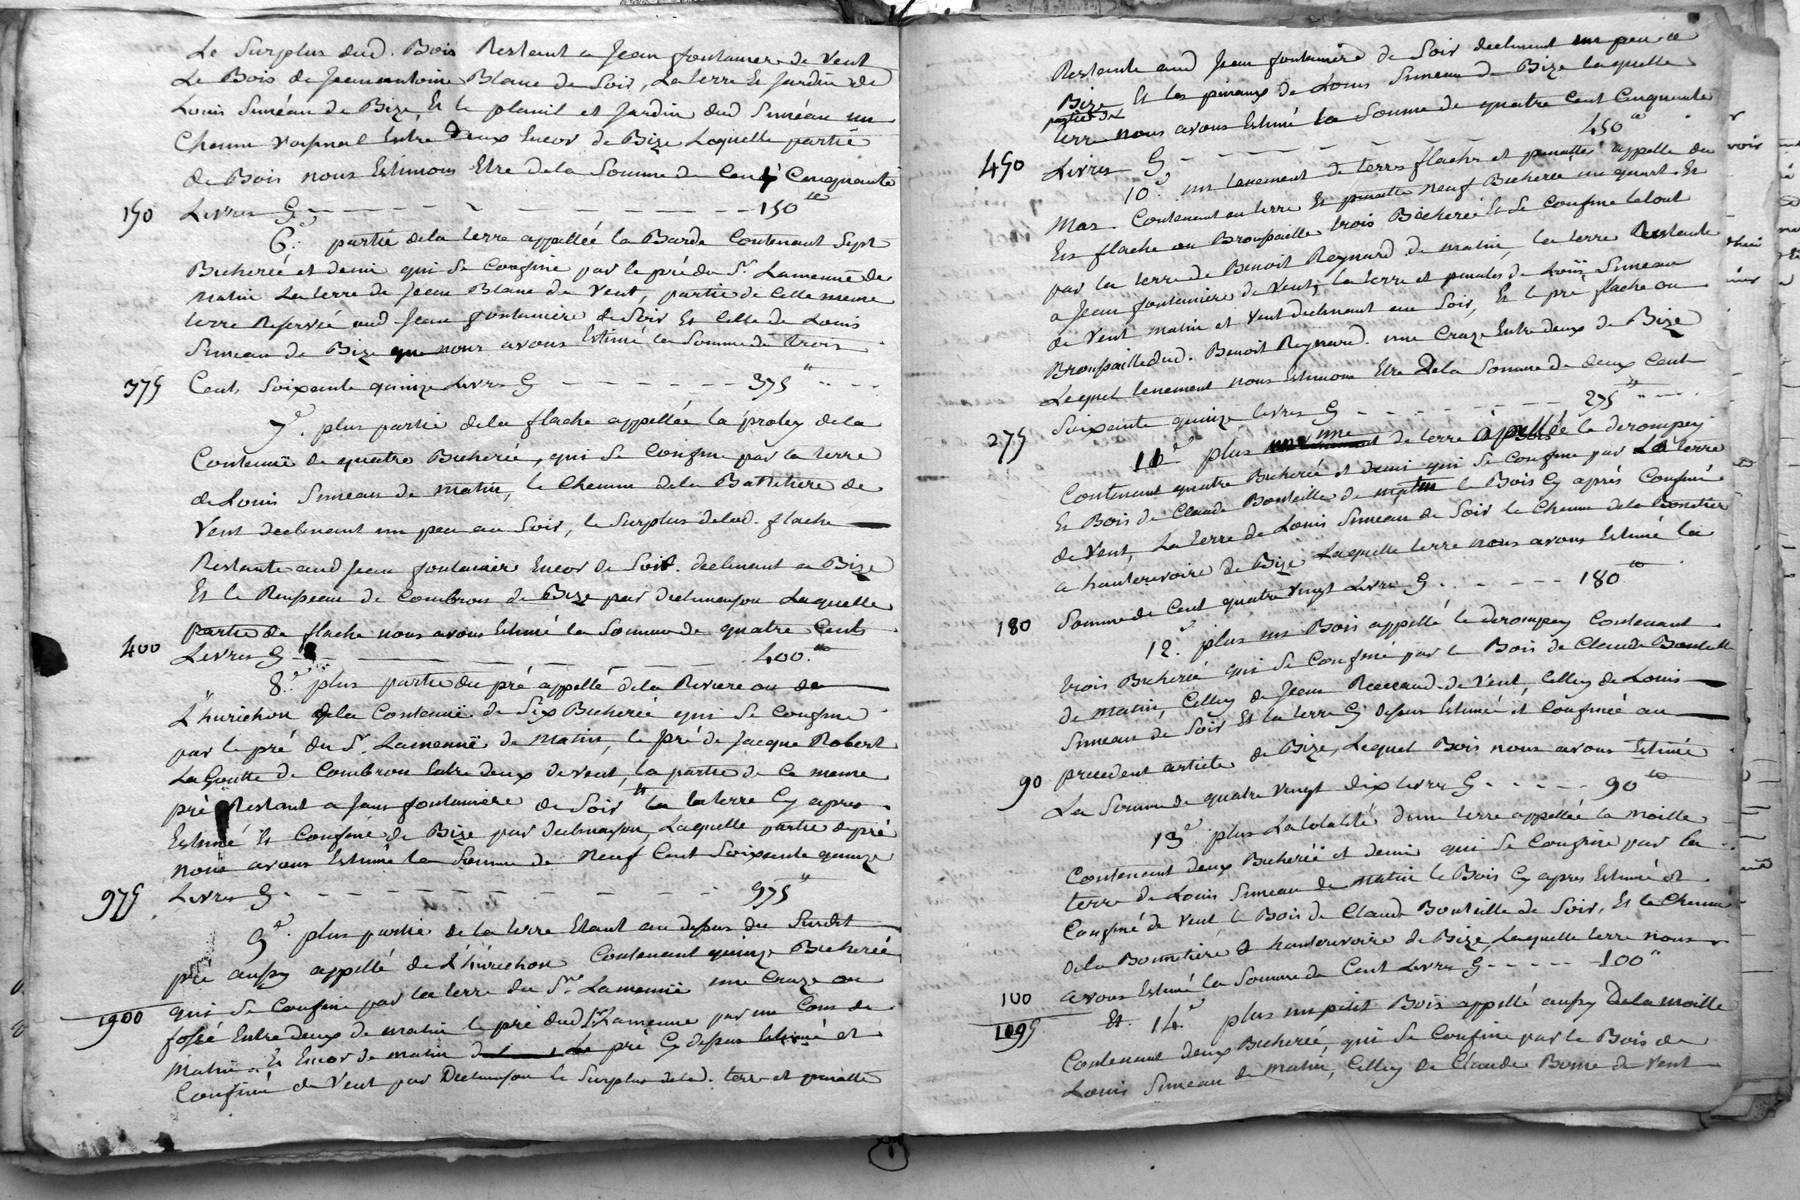 Le Surplus dud. Bois Restant a Jean fontaniere de Vent
Le Bois de Jeanantoine Blanc de Soir, La terre Et Jardin de
Louis Simean de Bize, Et le planil et Jardin dud Simean un
Chemin Entre deux Encor de Bize Laquelle partie
de Bois nous Estimons Etre de la Somme de Cent Cinquante
150 Livres Cy 150tt
6e. partie dela terre appellée la Barde Contenant Sept
Bicherée et demi qui Se Confine par le pré du Sr. Lamennë de
matin La terre de Jean Blanc de Vent, partie de Cette meme
terre Reservée aud Jean fontaniere de Soir Et Celle de Louis
Simean de Bize que nous avons Estimé la Somme de trois
375 Cent Soixante quinze Livres Cy 375"
7e. plus partie dela flache appellée la proley de la
Contenuë de quatre Bicherée, qui Se Confine par la terre
de Louis Simean de matin, le Chemin dela de
Vent declinant un peu au Soir, le Surplus delad. flache
Restante aud Jean fontanier Encor de Soir. declinant a Bize
Et le Ruisseau de Combron de Bize par declinaison Laquelle
partie de flache nous avons Estimé la Somme de quatre Cents
400 Livres Cy 400.tt
8e. plus partie du pré appellé dela Riviere ou de
L'hurichon dela Contenuë de Six Bicherée qui Se Confine
par le pré du Sr. Lamennë de matin, le pré de Jacque Robert
La Goutte de Combron Entre deux de vent, la partie de Ce meme
pré Restant a Jean fontaniere de Soir Et la terre Cy apres
Estimé Et Confiné de Bize par declinaison, Laquelle partie de pré
nous avons Estimé la Somme de Neuf Cent Soixante quinze
975 Livres Cy 975"
9e. plus partie de la terre Etant au dessus du Surdit
pré aussy appellé de L'hurichon Contenant quinze Bicherée
qui Se Confine par la terre du Sr. Lamennë une Craze ou
1900 fossé Entre deux de matin le pré dud Sr Lamenne par un Coin de
matin Et Encor de matin pré Cy dessus Estimé et
Confiné de Vent par Declinaison le Surplus delad. terre et pinatte
Restante aud Jean fontaniere de Soir declinant un peu a
Bize Et les pineaux de Louis Simean de Bize laquelle
partie de
terre nous avons Estimé la Somme de quatre Cent Cinquante
450 Livres Cy 450tt
10e. un tenement de terre flache et pinatte appelle du
Mas. Contenant en terre Et pinatte neuf Bicherée un quart Et
En flache ou Broussaille trois Bicherée Et Se Confine le tout
par la terre de Benoit Reynard de matin, la terre Restante
a Jean fontaniere de Vent, la terre et pinates de Loüis Simean
de Vent matin et Vent declinant au Soir, Et le pré flache ou
Broussaille dud. Benoit Reynard. une Craze Entre deux de Bize
Lequel tenement nous Estimons Etre dela Somme de deux Cent
275 Soixante quinze livres Cy 275tt
11e plus une de terre apellée le derompey
Contenant quatre Bicherée et demi qui Se Confine par La terre
Et Bois de Claude Bouteille de matin le Bois Cy après Confiné
de Vent, La terre de Louis Simean de Soir le Chemin dela
a hauterivoire de Bize Laquelle terre nous avons Estimé la
180 Somme de Cent quatre Vingt Livres Cy 180tt
12e. plus un Bois appellé le derompey Contenant
trois Bicherée qui Se Confine par le Bois de Claude Bouteille
de matin, Celluy de Jean de Vent, Celluy de Louis
Simean de Soir Et la terre Cy dessus Estimée et Confinée au
precedent article de Bize, Lequel Bois nous avons Estimé
90 La Somme de quatre Vingt dix livres Cy 90tt
13e plus La totalité d'une terre appellée la moille
Contenant deux Bicherée et demi qui Se Confine par la
terre de Louis Simean de matin le Bois Cy apres Estimé et
Confiné de Vent le Bois de Claude Bouteille de Soir, Et le Chemin
dela a hauterivoire de Bize, Laquelle terre nous
100 avons Estimé la Somme de Cent Livres Cy 100"
1095 Et. 14e plus un petit Bois appellé aussy Dela moille
Contenant deux Bicherée, qui Se Confine par le Bois de
Louis Simean de matin, Celluy de Claude de Vent